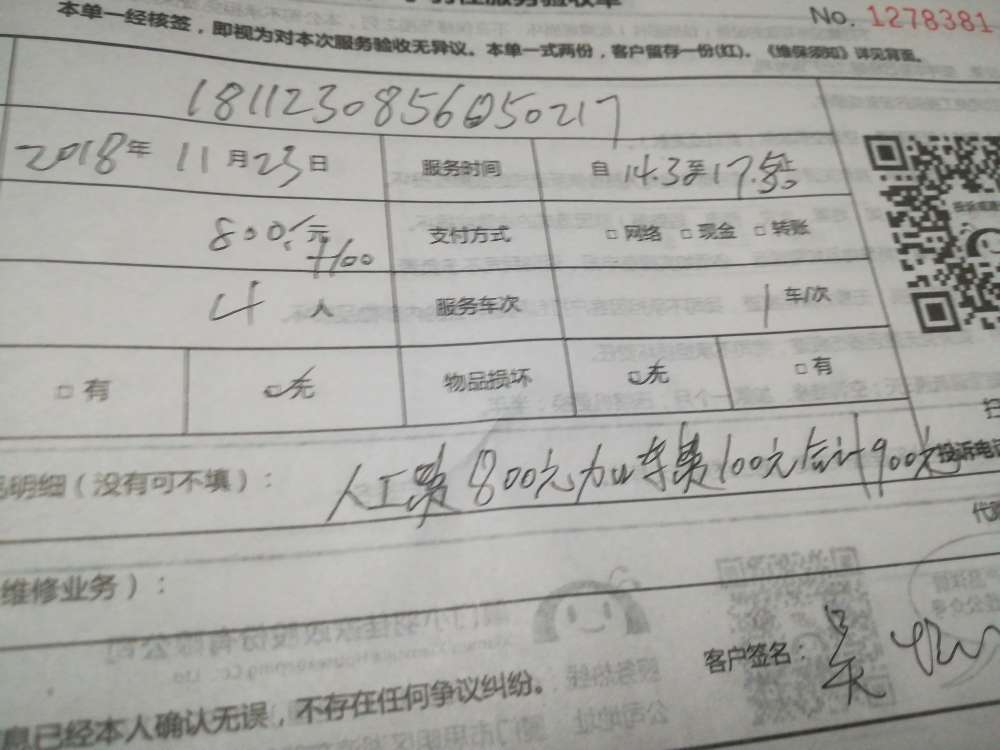 No. 1278381
本单一经核签，即视为对本次服务验收无异议。本单一式两份，客户留存一份(红)。《维保须知》详见背面。
1811230856050217
2018年 11月23日 服务时间 自 14.30至17.30止
800.元+100 支付方式 □网络 □现金 □转账
4人 服务车次 1车/次
□有 □无 物品损坏 □无 □有
明细（没有可不填）： 人工费800元加车费100元合计900元 投诉电话
维修业务）：
客户签名： 吴
息已经本人确认无误，不存在任何争议纠纷。